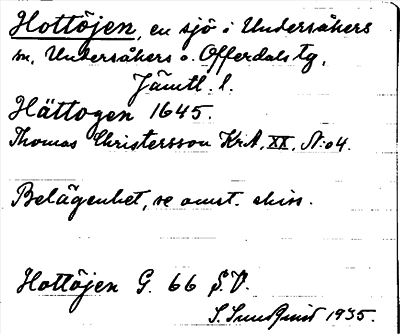 Hottöjen, en sjö i Undersåkers
m. Undersåkers o. Offerdals tg,
Jämtl. l.
Hättogen 1645.
Thomas Christersson KrA, XX, N:o 4.
Belägenhet, se omst. skiss.
Hottöjen G. 66 S.V.
S. Sundqvist 1935.